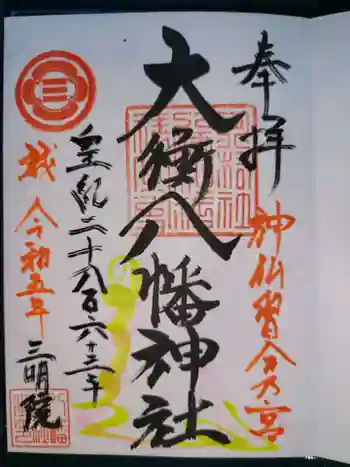 奉拝
神仏習合乃宮
大衡八幡神社
皇紀二千六百八十三年
令和五年
三明院